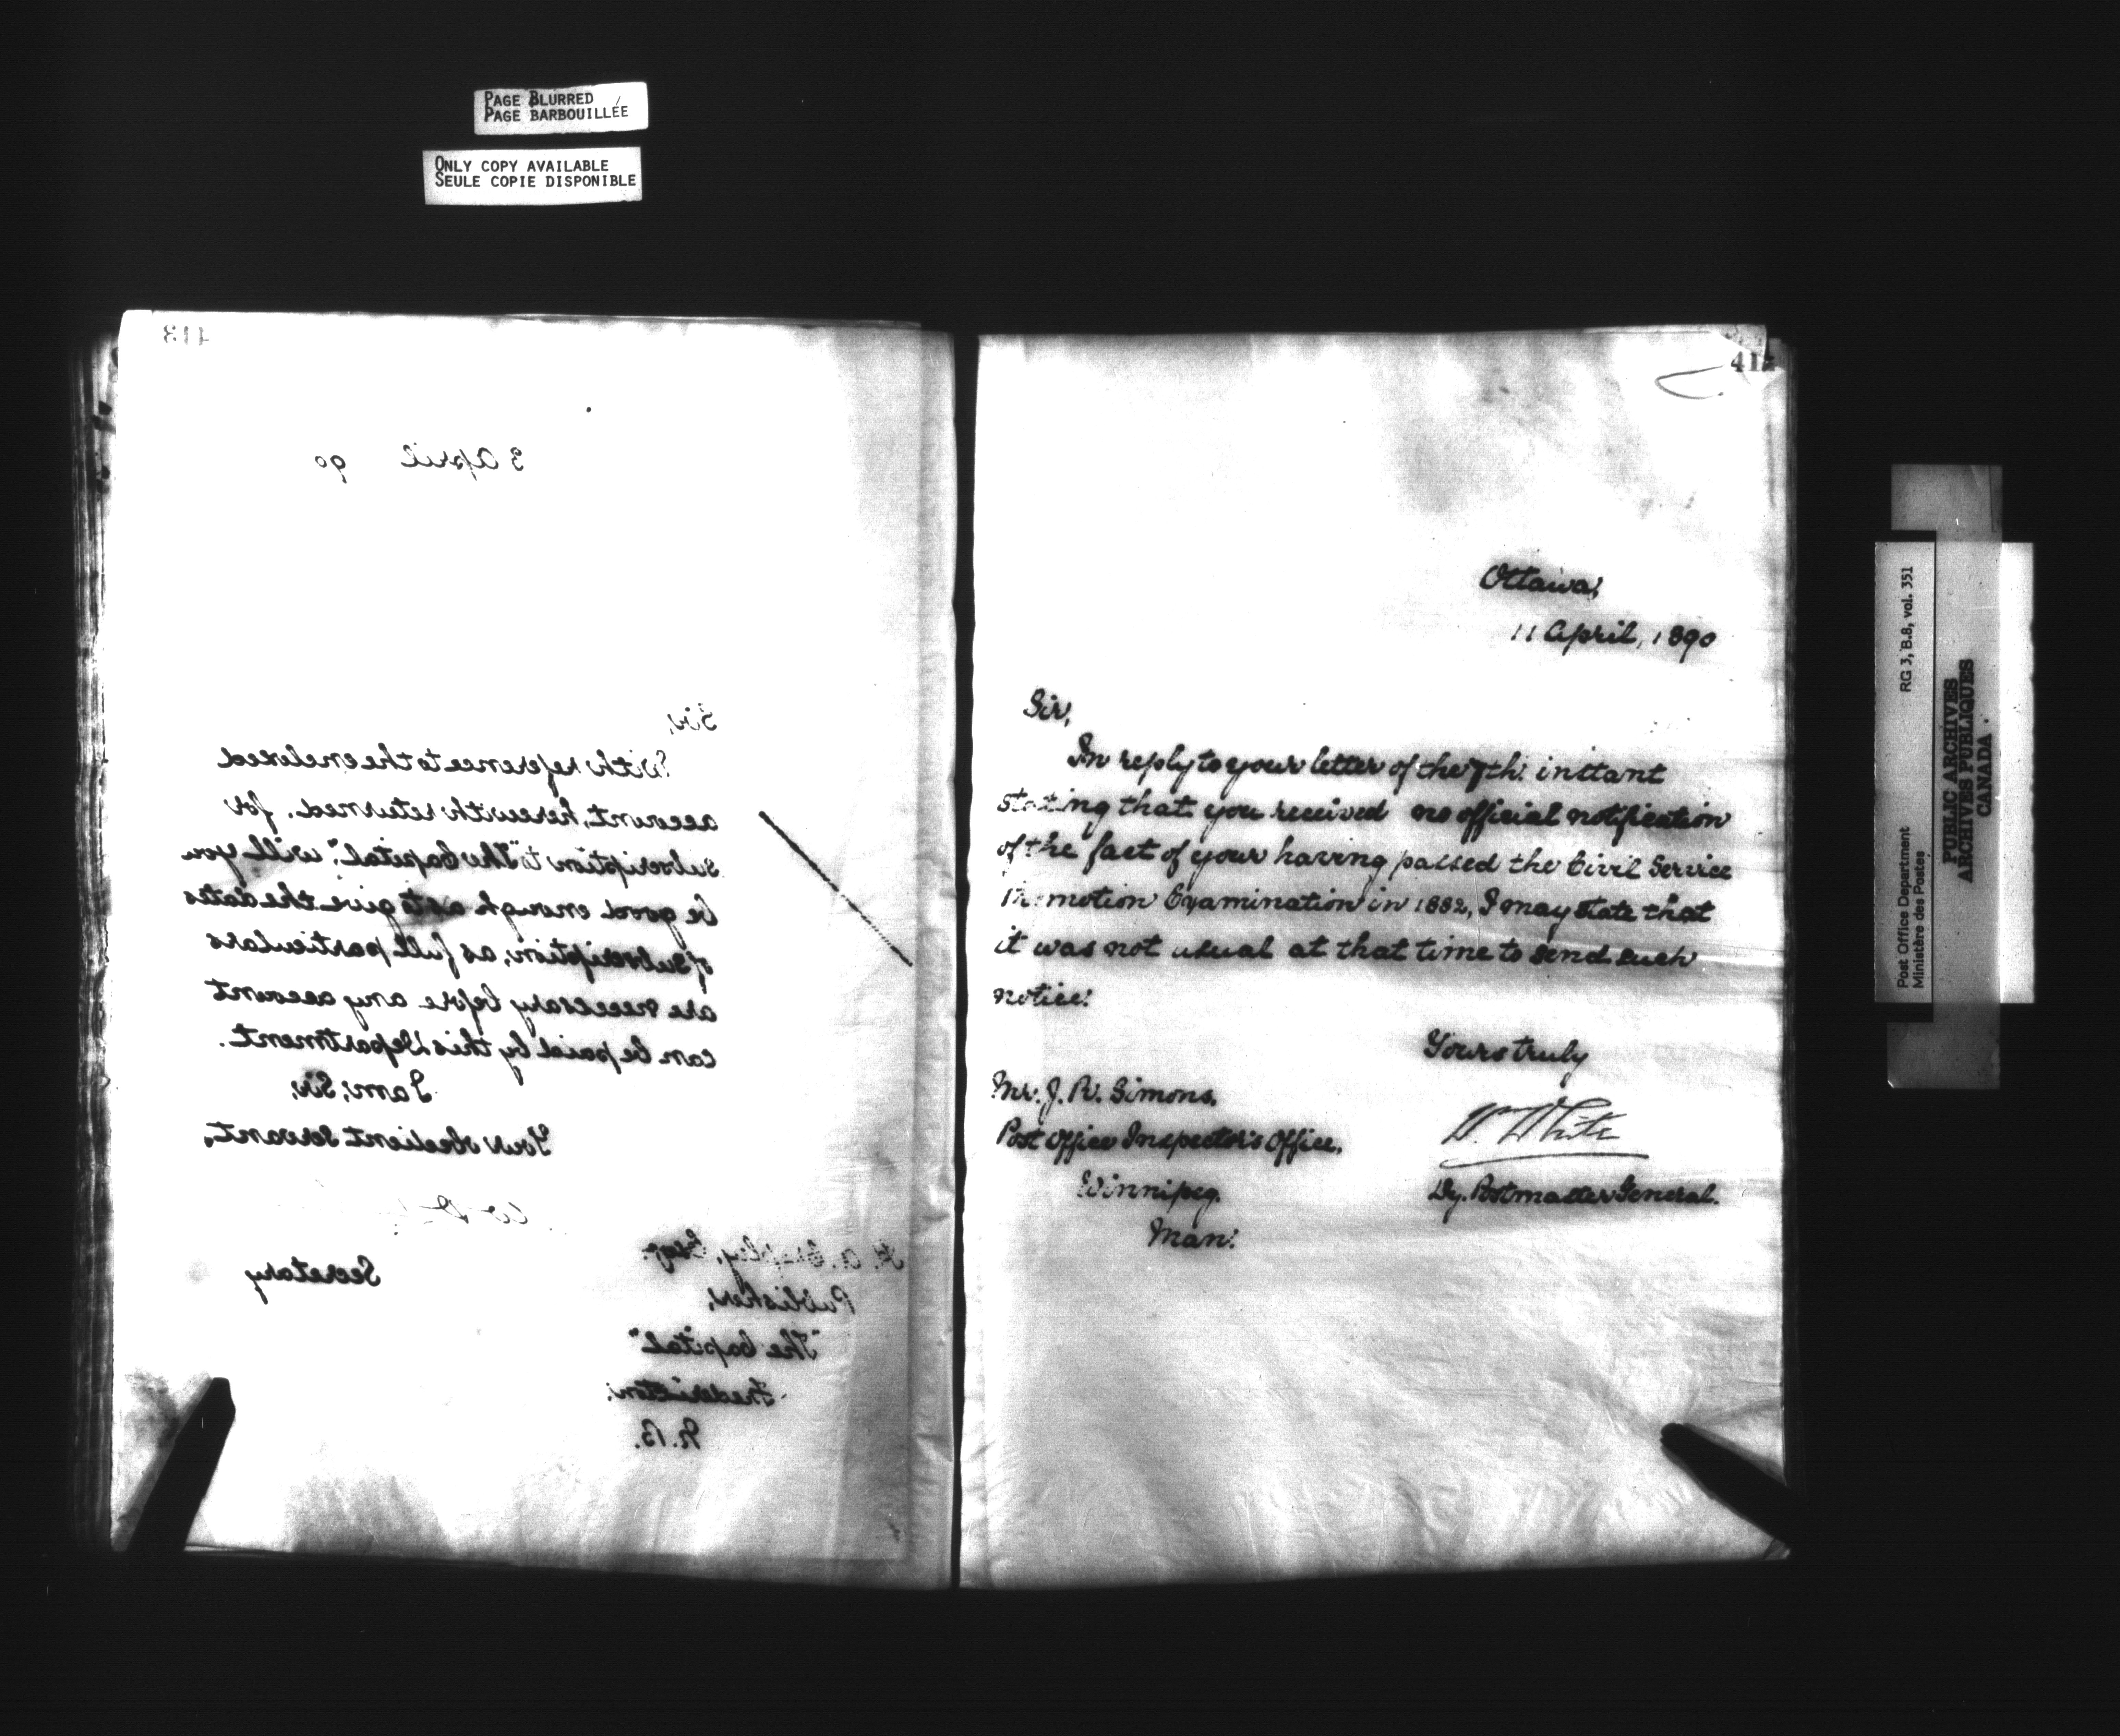 PAGE BLURRED
PAGE BARBOUILLÉE
ONLY COPY AVAILABLE
SEULE COPIE DISPONIBLE
413
3 April 90
Sir,
With reference to the enclosed
account, herewith returned, for
subscription to "The Capital", will you
be good enough as to give the dates
of subscription, as full particulars
are necessary before any account
can be paid by this Department.
I am, Sir,
Your obedient servant,
Secretary
A. Esq.
Publisher,
"The Capital"
Fredericton,
N.B.
41
Ottawa,
11 April, 1890
Sir,
In reply to your letter of the 7th. instant
stating that you received no official notification
of the fact of your having passed the Civil Service
Promotion Examination in 1882, I may state that
it was not usual at that time to send such
notice.
Yours truly
W. White
Dy. Postmaster General.
Mr. J. R. Simons,
Post Office Inspector's Office,
Winnipeg.
Man:
Post Office Department
Ministère des Postes
RG 3, B.8, vol. 351
PUBLIC ARCHIVES
ARCHIVES PUBLIQUES
CANADA